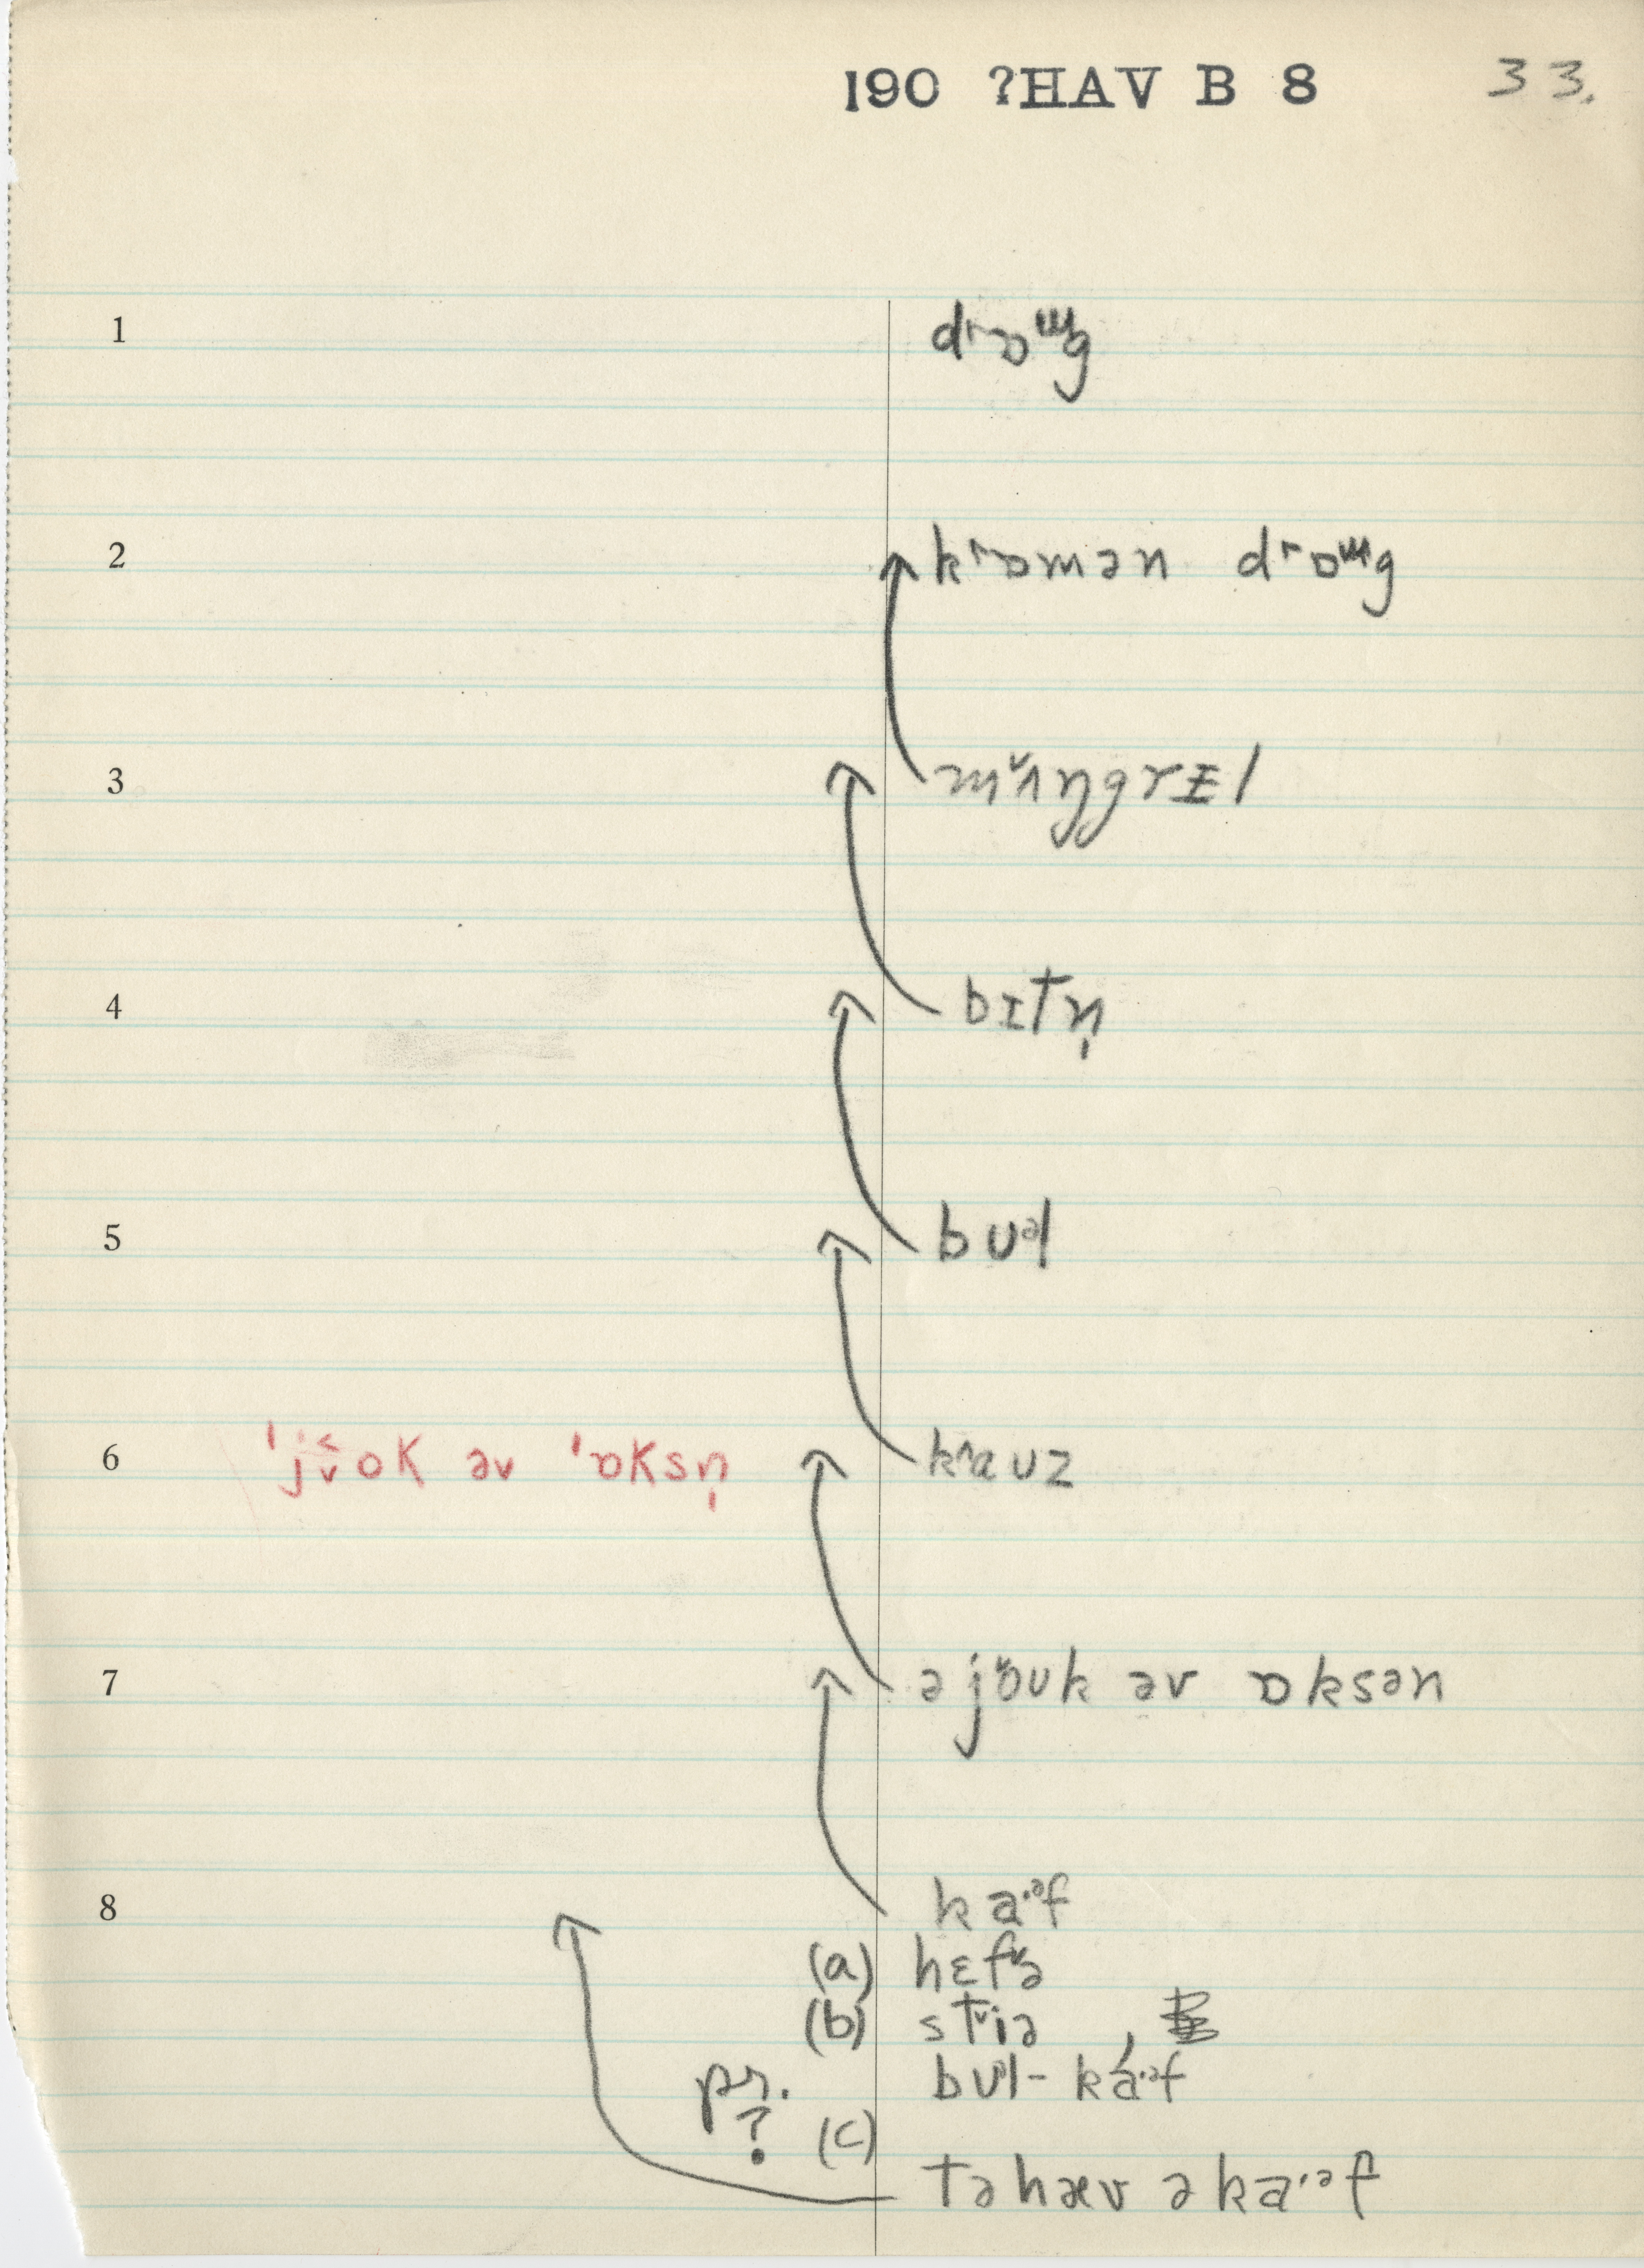 190 ?HAV B 8 33.
1 drɒɯg
2 kɒmən drɒɯg
3 mʌ̌ŋgrɪl
4 bɪtn̩
5 bʊəl
6 ˈjo̬k əv ˈɒksn̩ kaʊz
7 ə jǒʊk əv ɒksən
8 ka·əf
(a) hɛfə
(b) stiə ,
bʊəl- ká·əf
pr. ? (c)
tə hæv ə ka·əf